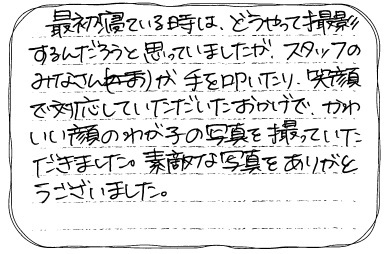 最初寝ている時は、どうやって撮影
するんだろうと思っていましたが、スタッフの
みなさんが 手を叩いたり、笑顔
で対応していただいたおかげで、かわ
いい顔のわが子の写真を撮っていた
だきました。素敵な写真をありがと
うございました。